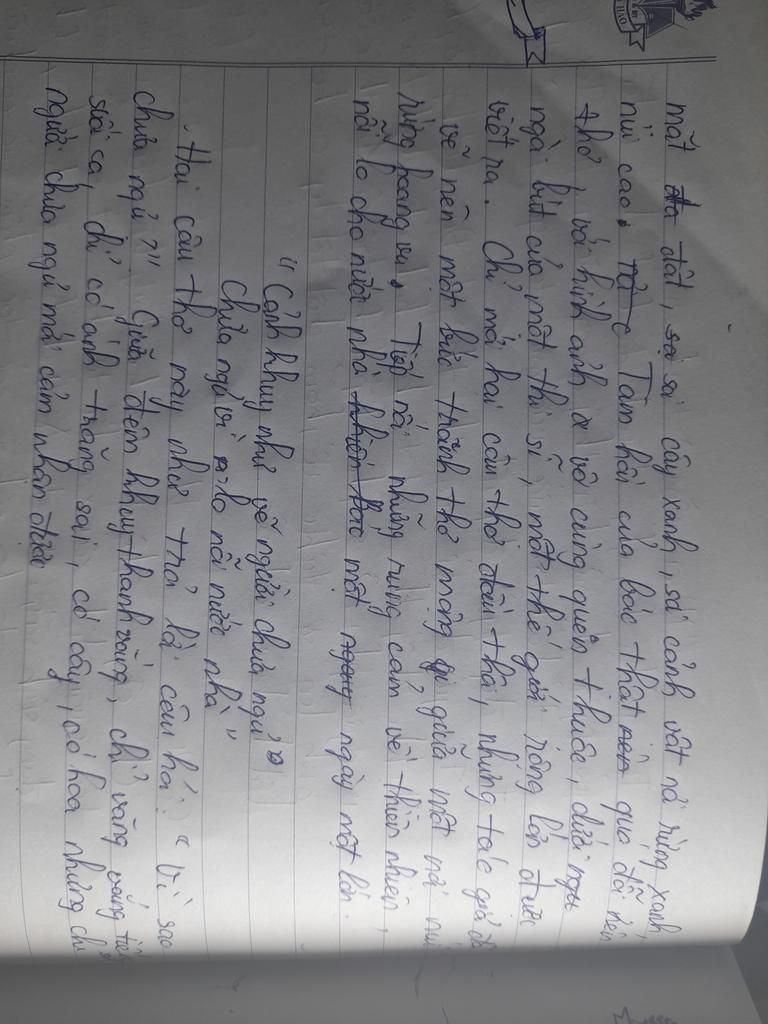 mắt đất, sỏi sỏi cây xanh, số cảnh vật nà rừng xanh,
núi cao. Tâm hồn của bác thật quá đỗi nên
thơ, với hình ảnh vô cùng quen thuộc, dưới ngòi
ngòi bút của một thi sĩ, một thế giới rộng lớn được
viết ra. Chỉ mới hai câu thơ đầu thôi, nhưng tác giả đã
vẽ nên một bức tranh thơ mộng giữa một núi
rừng hoang vu. Tiếp nối những rung cảm về thiên nhiên,
nỗi lo cho nước nhà một ngày một lớn.
"Cảnh khuya như vẽ người chưa ngủ
Chưa ngủ vì lo nỗi nước nhà"
Hai câu thơ này như trả lời câu hỏi: "Vì sao
chưa ngủ?" Giữa đêm khuya thanh vắng, chỉ văng vẳng tiếng
suối ca, chỉ có ánh trăng soi, có cây, có hoa nhưng chỉ
người chưa ngủ mới cảm nhận được